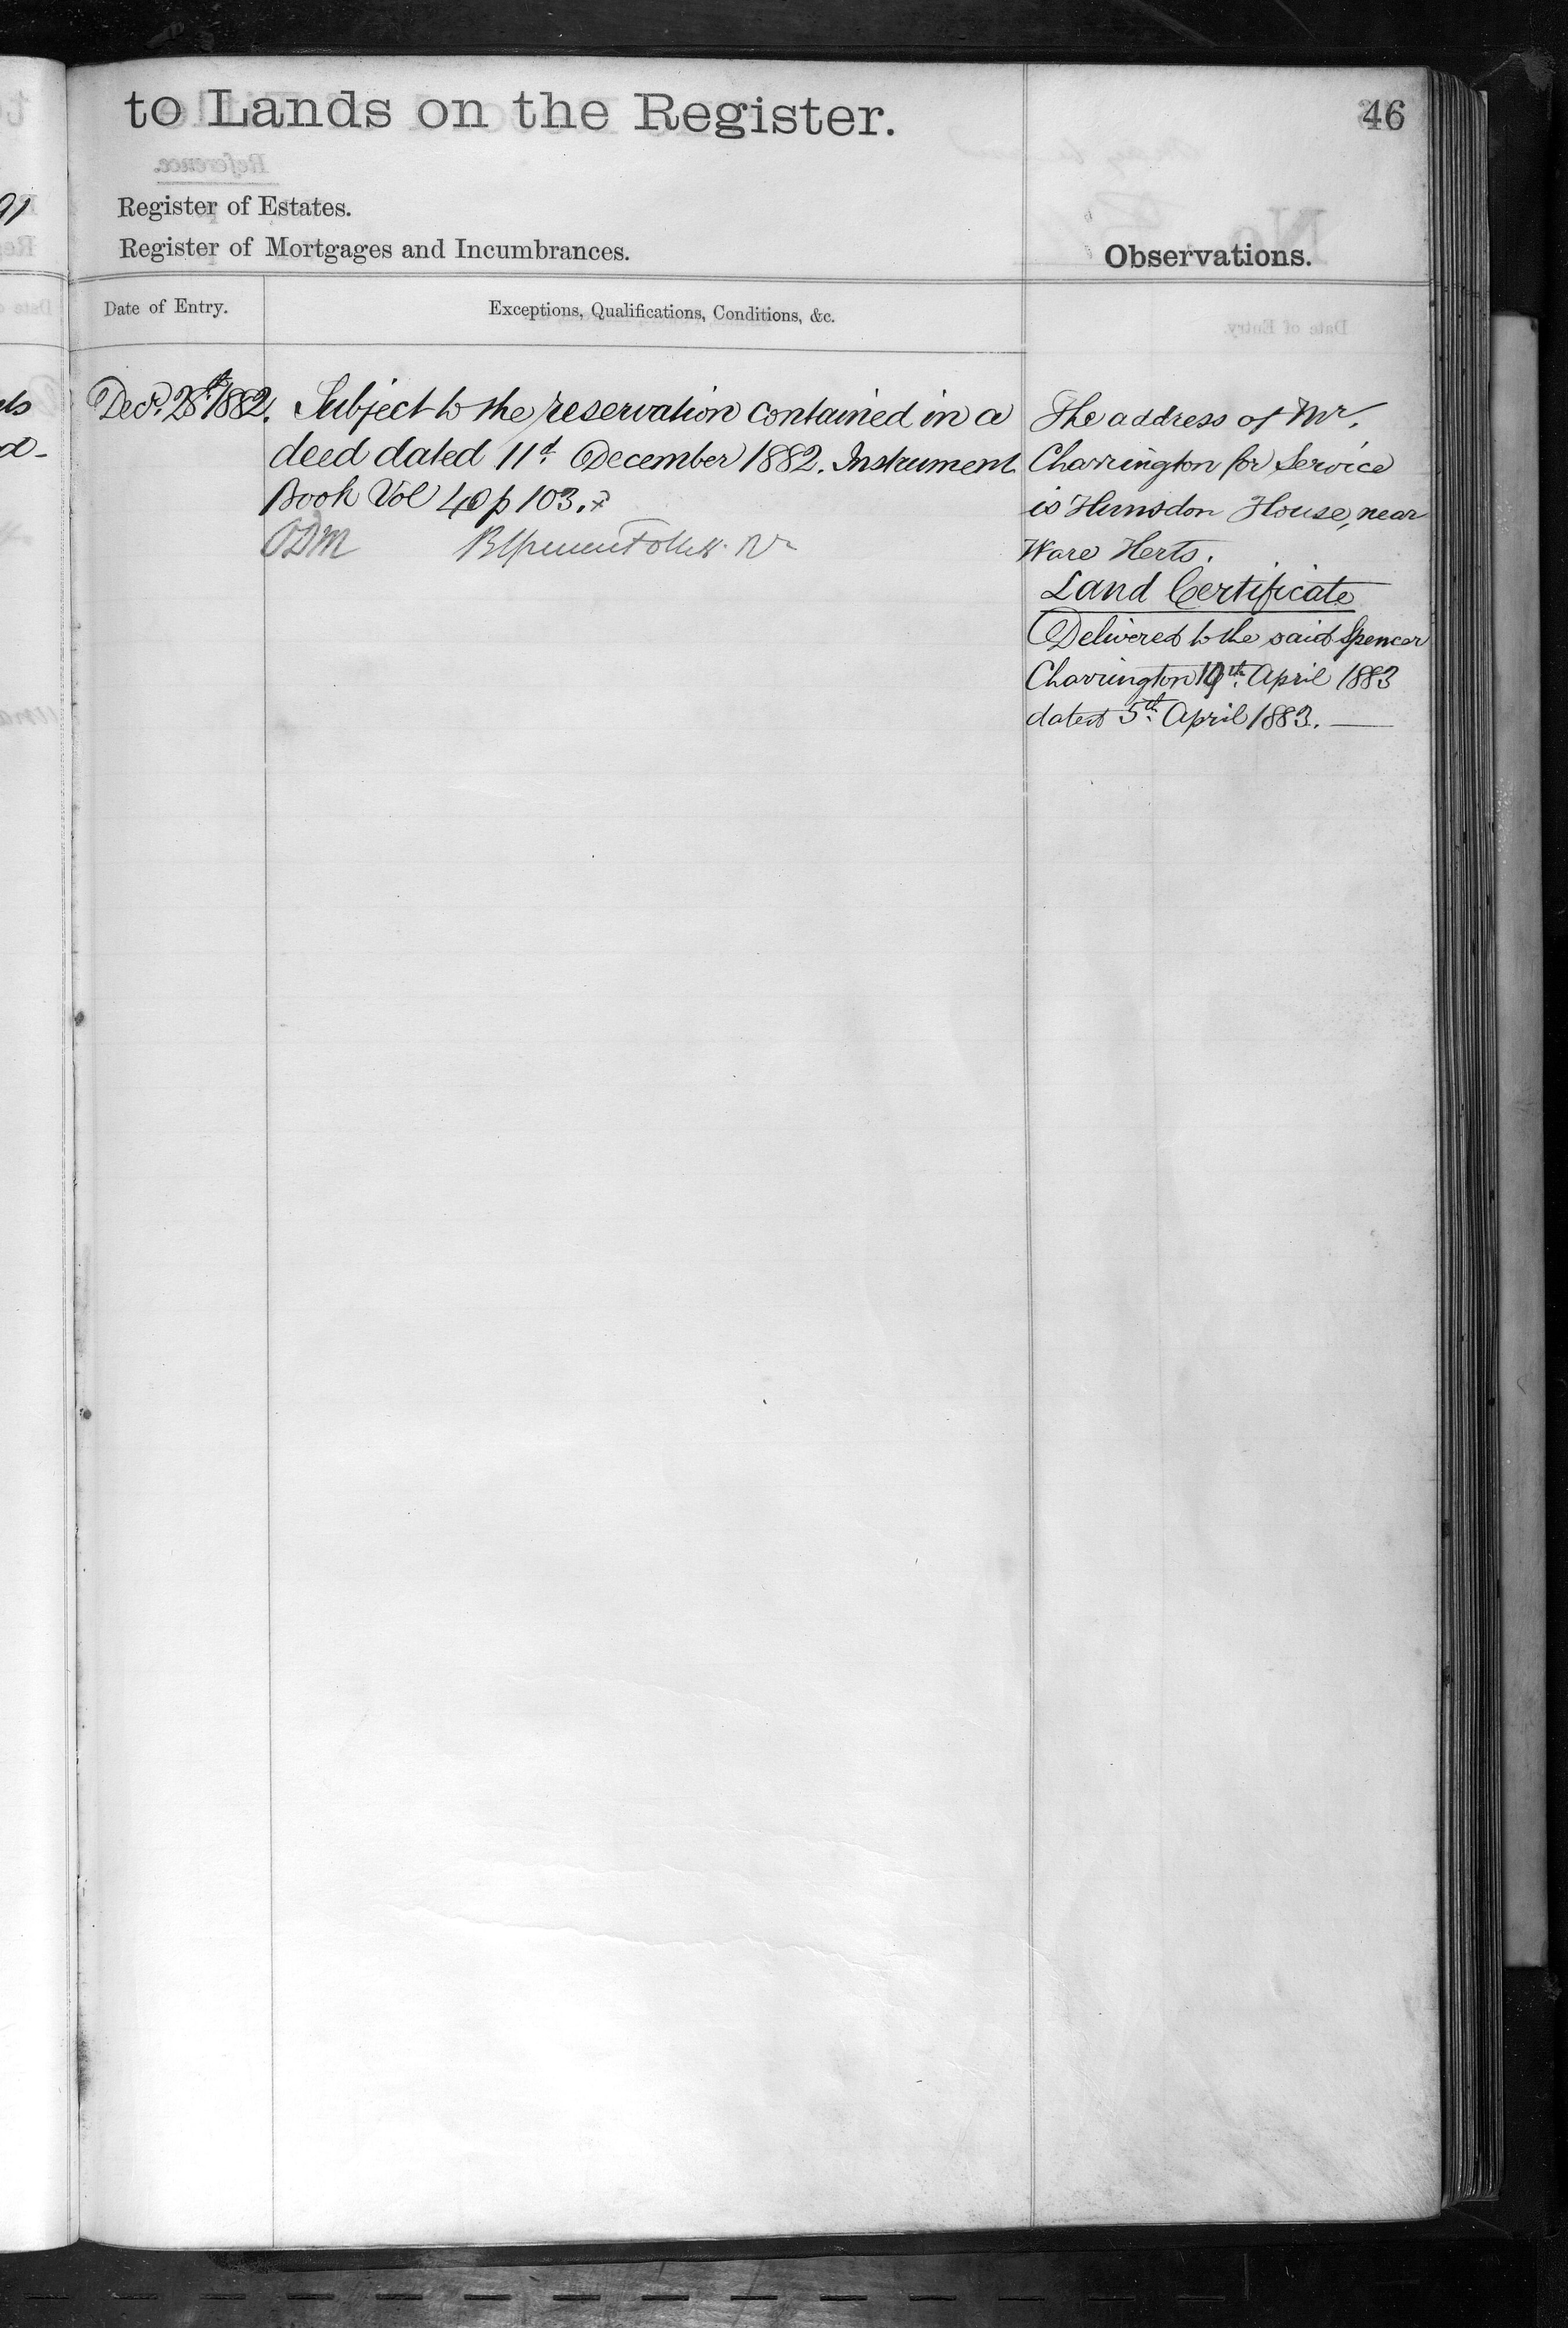 to Lands on the Register.
46
Register of Estates.
Register of Mortgages and Incumbrances.
Observations.
Date of Entry.
Exceptions, Qualifications, Conditions, &c.
Decr. 28th 1882.
Subject to the reservation contained in a
deed dated 11th December 1882. Instrument
Book Vol 40 p 103.
The address of Mr.
Charrington for Service
is Hunsdon House, near
Ware Herts.
Land Certificate
Delivered to the said Spencer
Charrington 19th April 1883
dated 5th April 1883. —